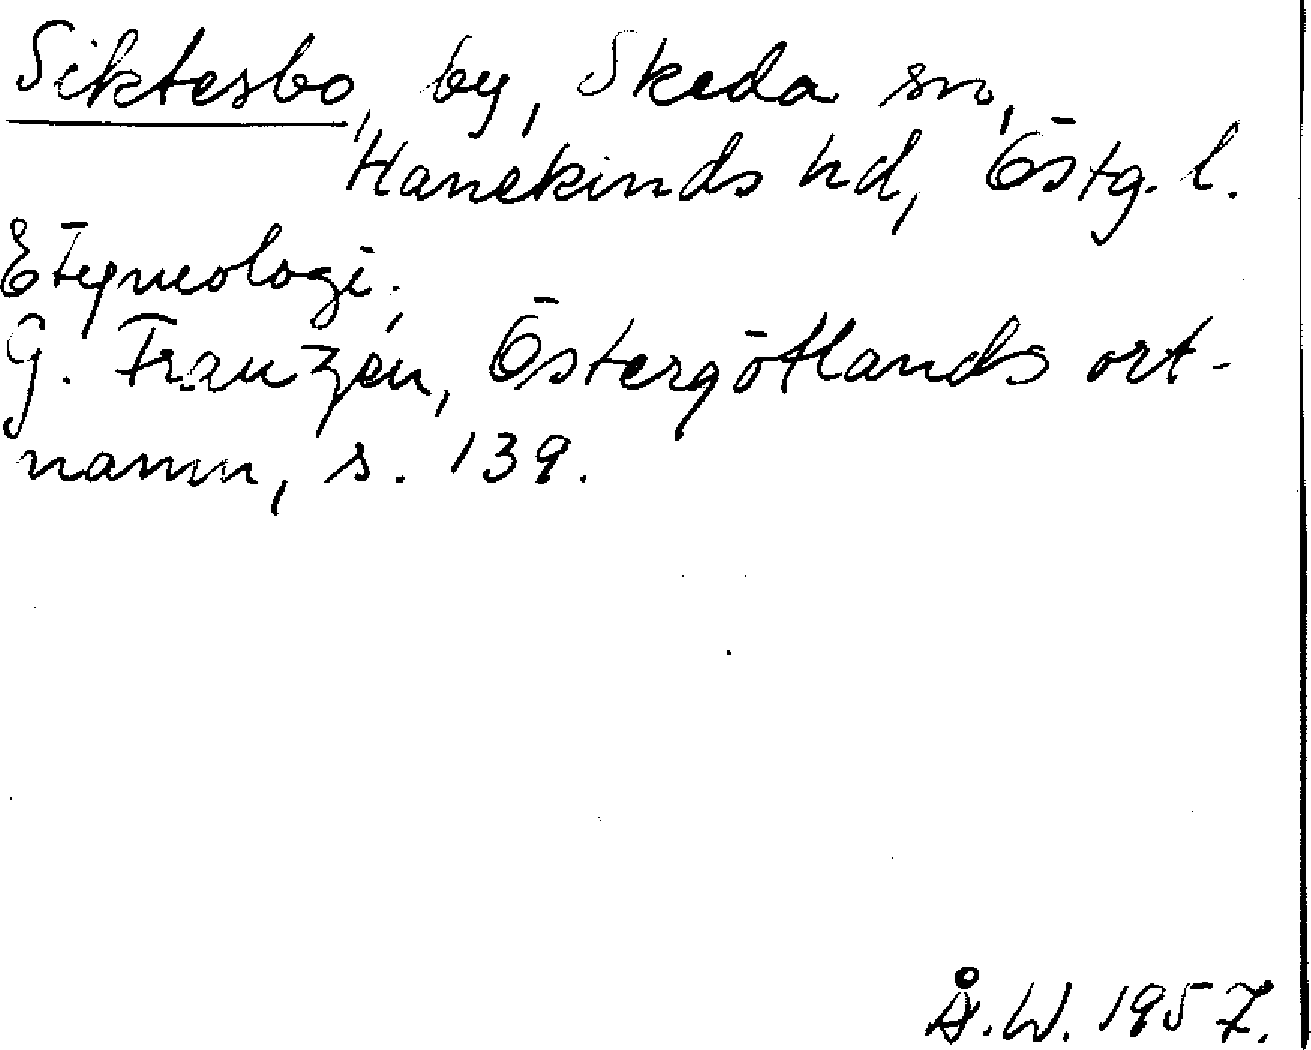 Siktesbo, by, Skeda sn,
Hanekinds hd, Östg. l.
Etymologi:
G. Franzén, Östergötlands ort-
namn, s. 139.
Å.W. 1957.